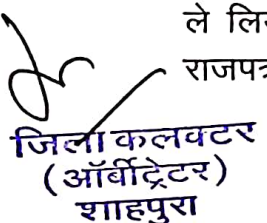 ले लि
राजपत्र
जिला कलक्टर
(ऑर्बीट्रेटर)
शाहपुरा